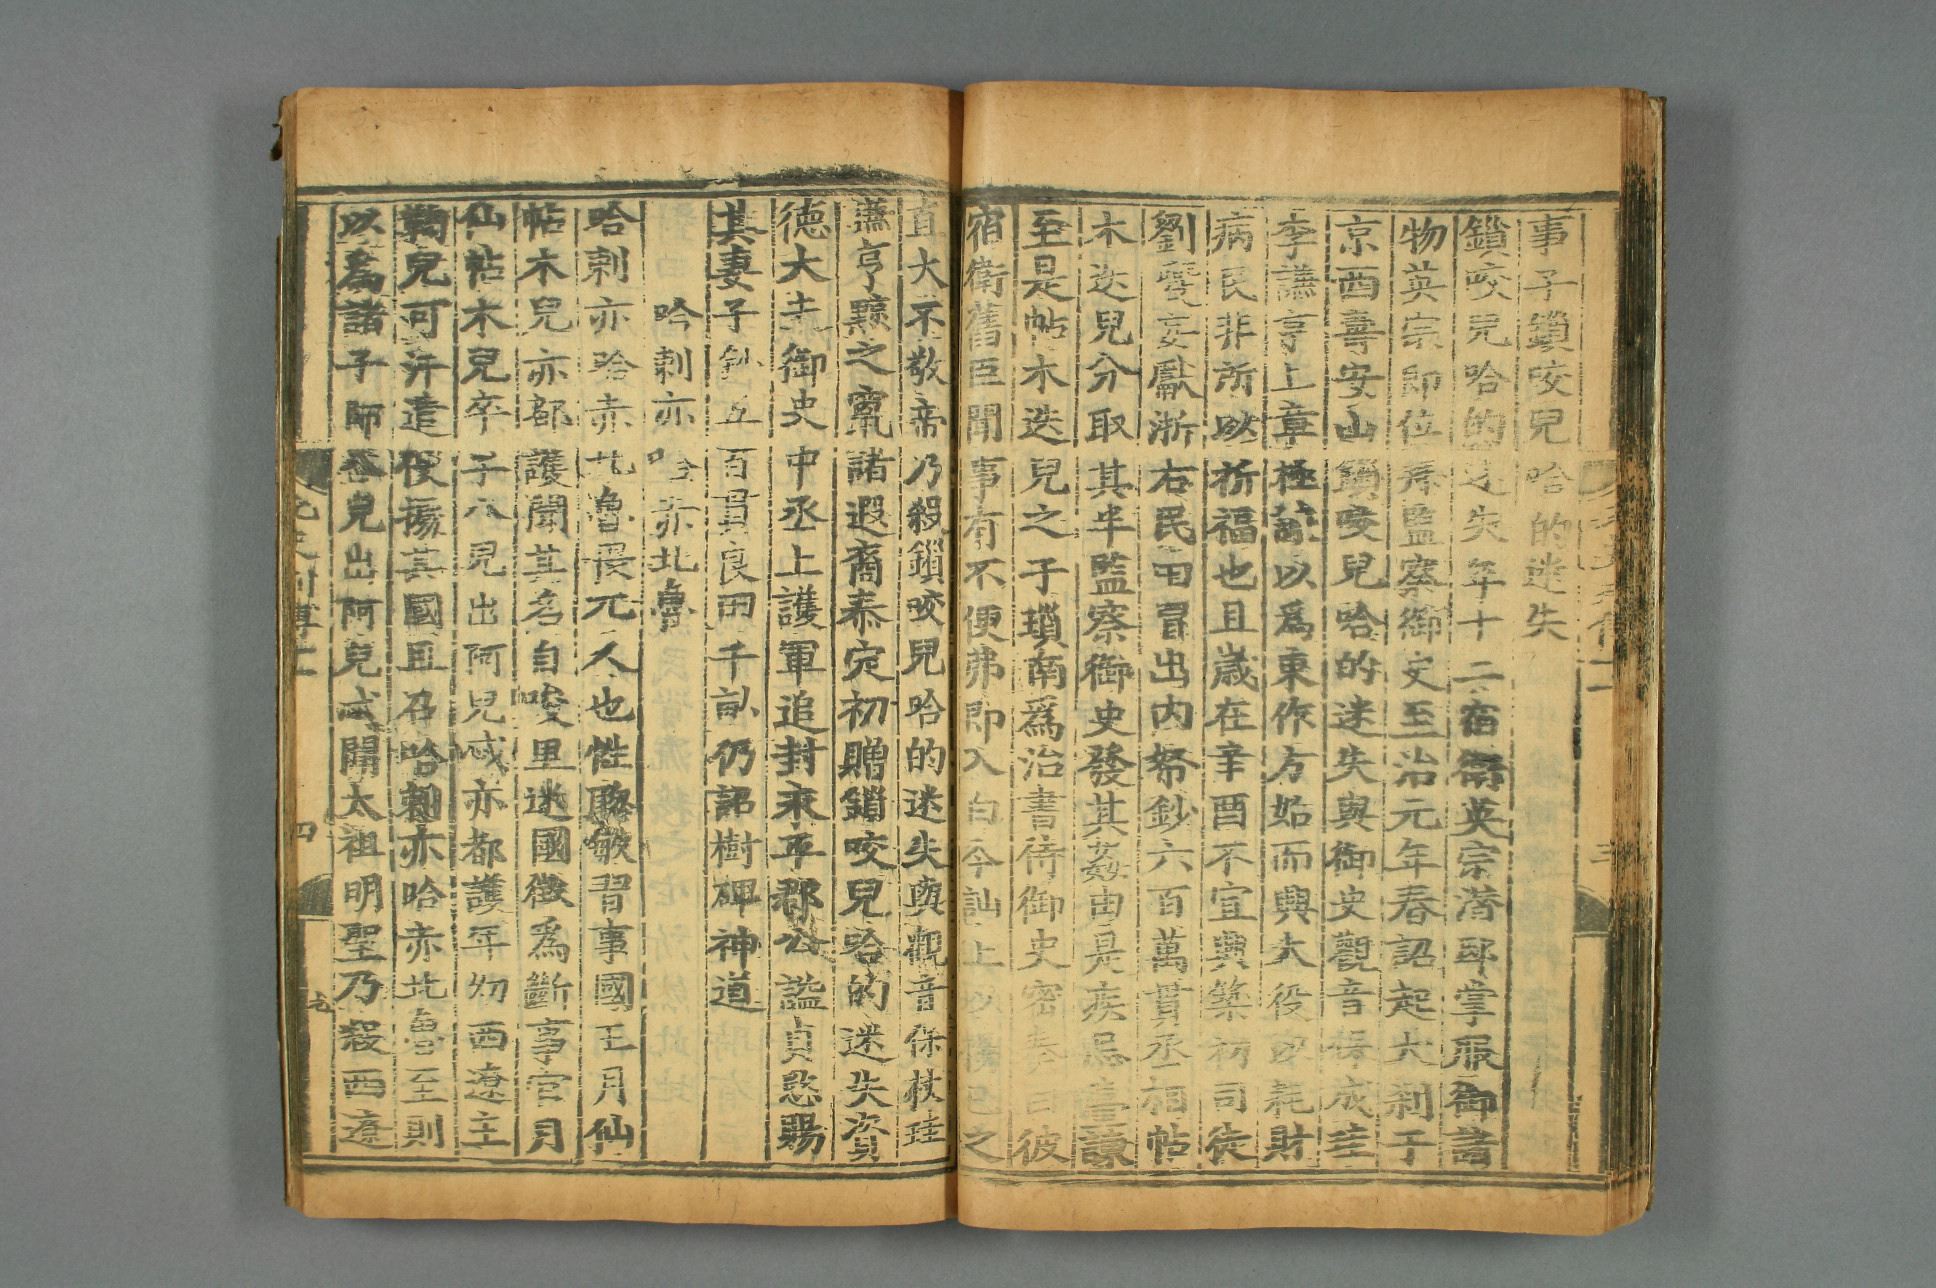 事子鎖咬兒哈的迷失
鎖咬兒哈的迷失年十二宿衛英宗潛邸掌服御諸
物英宗即位拜監察御史至治元年春詔起大刹于
京西壽安山鎖咬兒哈的迷失與御史觀音保成珪
李謙亨上章極諫以爲東作方始而興大役以耗財
病民非所以祈福也且歲在辛酉不宜興築初司徒
劉夔妄獻浙右民田冒出内帑鈔六百萬貫丞相帖
木迭兒分取其半監察御史發其姦由是疾忌臺諫
至是帖木迭兒之子瑣南爲治書侍御史密奏曰彼
宿衛舊臣聞事有不便弗即入白今訕上以揚己之
直大不敬帝乃殺鎖咬兒哈的迷失與觀音保杖珪
謙亨黥之竄諸遐裔泰定初贈鎖咬兒哈的迷失資
德大夫御史中丞上護軍追封永平郡公諡貞愍賜
其妻子鈔五百貫良田千畝仍詔樹碑神道
哈剌亦哈赤北魯
哈剌亦哈赤北魯畏兀人也性聰敏習事國王月仙
帖木兒亦都護聞其名自唆里迷國徵爲斷事官月
仙帖木兒卒子八兒出阿兒忒亦都護年幼西遼主
鞠兒可汗遣使據其國且召哈剌亦哈赤北魯至則
以爲諸子師八兒出阿兒忒聞太祖明聖乃殺西遼
元史列傳十一 四